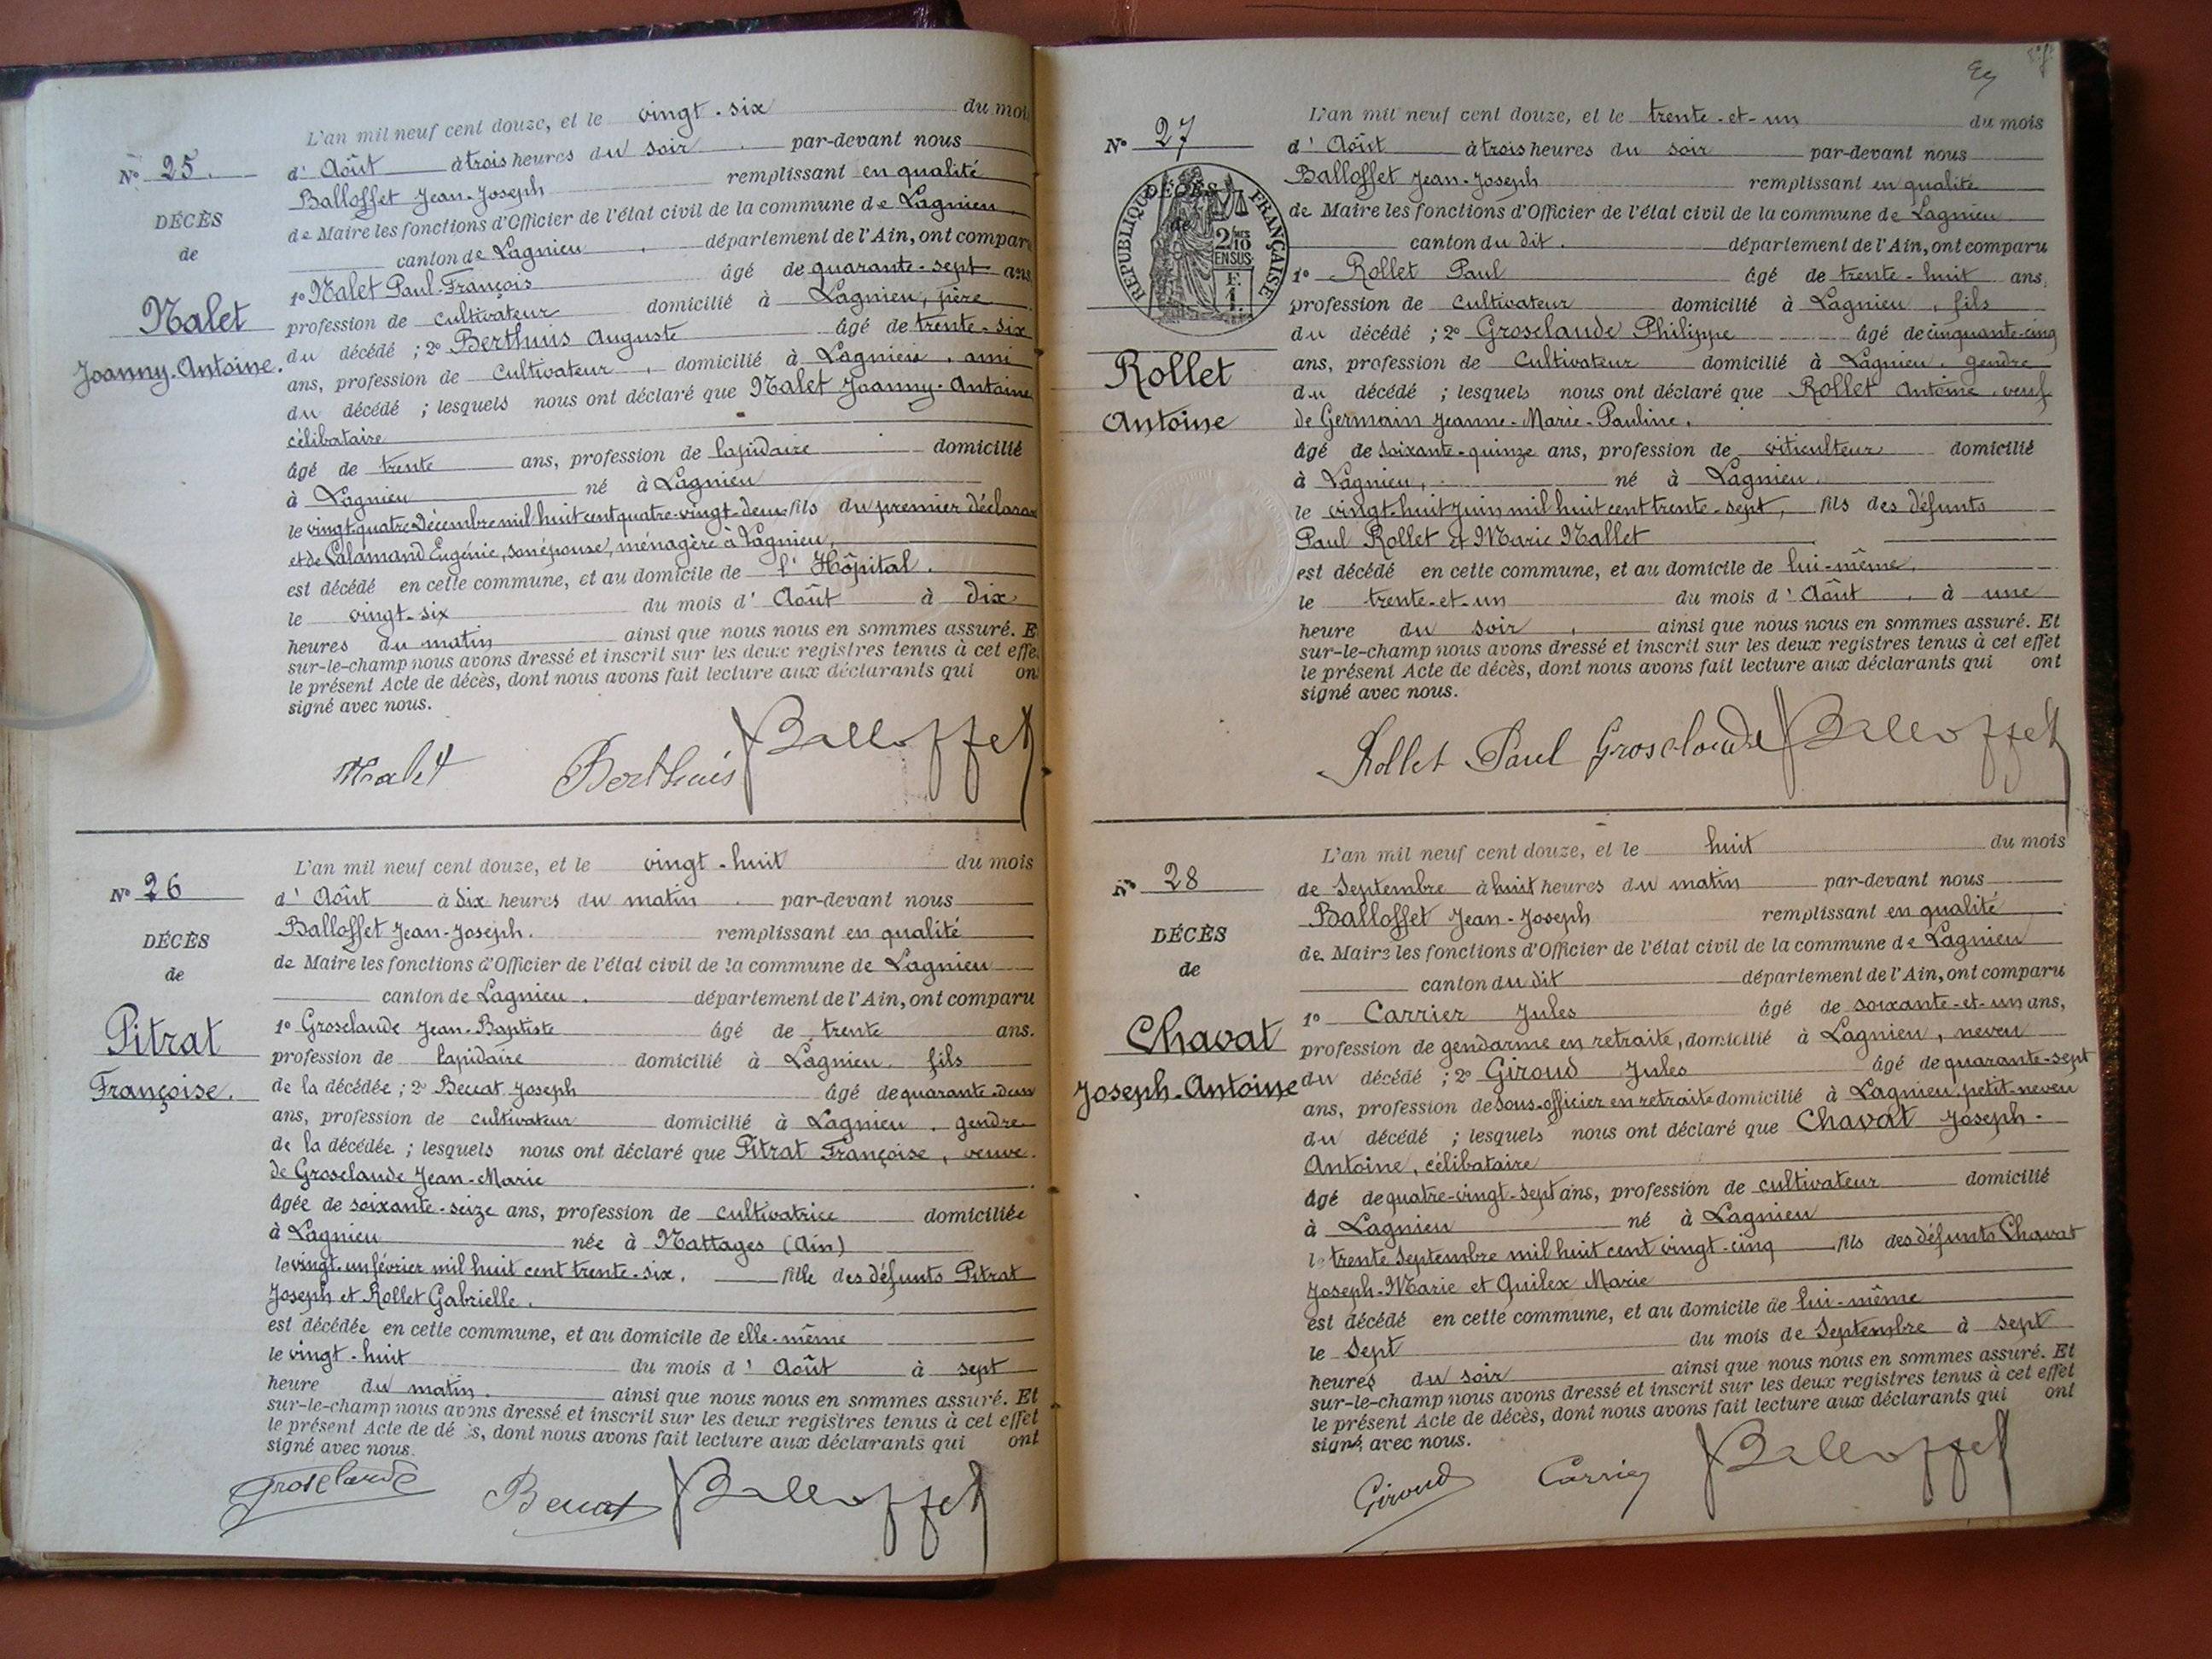 L'an mil neuf cent douze, et le vingt-six du mois
N° 25. d'Août à trois heures du soir par-devant nous
Balloffet Jean-Joseph remplissant en qualité
DÉCÈS de Maire les fonctions d'Officier de l'état civil de la commune de Lagnieu
de canton de Lagnieu département de l'Ain, ont compar
1° Malet Paul-François âgé de quarante-sept ans
Malet profession de cultivateur domicilié à Lagnieu, père
du décédé ; 2° Berthuis Auguste âgé de trente-six
Joanny-Antoine. ans, profession de cultivateur, domicilié à Lagnieu, ami
du décédé ; lesquels nous ont déclaré que Malet Joanny-Antoine
célibataire
âgé de trente ans, profession de lapidaire domicilié
à Lagnieu né à Lagnieu
le vingt-quatre Décembre mil huit cent quatre-vingt-deux fils du premier déclarant
et de Calamand Eugénie, son épouse, ménagère à Lagnieu,
est décédé en cette commune, et au domicile de l'Hôpital.
le vingt-six du mois d'Août à dix
heures du matin ainsi que nous nous en sommes assuré. E
sur-le-champ nous avons dressé et inscrit sur les deux registres tenus à cet effe
le présent Acte de décès, dont nous avons fait lecture aux déclarants qui on
signé avec nous.
Malet Berthuis Balloffet
L'an mil neuf cent douze, et le vingt-huit du mois
N° 26 d'Août à dix heures du matin par-devant nous
Balloffet Jean-Joseph. remplissant en qualité
DÉCÈS de Maire les fonctions d'Officier de l'état civil de la commune de Lagnieu
de canton de Lagnieu. département de l'Ain, ont comparu
1° Groselaude Jean-Baptiste âgé de trente ans.
Pitrat profession de lapidaire domicilié à Lagnieu, fils
Françoise. de la décédée ; 2° Beccat Joseph âgé de quarante-deux
ans, profession de cultivateur domicilié à Lagnieu, gendre
de la décédée ; lesquels nous ont déclaré que Pitrat Françoise, veuve
de Groselaude Jean-Marie
âgée de soixante-seize ans, profession de cultivatrice domiciliée
à Lagnieu née à Nattages (Ain)
le vingt-un février mil huit cent trente-six, fille des défunts Pitrat
Joseph et Rollet Gabrielle.
est décédée en cette commune, et au domicile de elle-même
le vingt-huit du mois d'Août à sept
heure du matin. ainsi que nous nous en sommes assuré. Et
sur-le-champ nous avons dressé et inscrit sur les deux registres tenus à cet effet
le présent Acte de décès, dont nous avons fait lecture aux déclarants qui ont
signé avec nous.
Groselaude Beccat Balloffet
L'an mil neuf cent douze, et le trente-et-un du mois
N° 27 d'Août à trois heures du soir par-devant nous
Balloffet Jean-Joseph remplissant en qualité
DÉCÈS de Maire les fonctions d'Officier de l'état civil de la commune de Lagnieu
de canton du dit. département de l'Ain, ont comparu
RÉPUBLIQUE FRANÇAISE
2/10MES
EN SUS
F.
1.
1° Rollet Paul âgé de trente-huit ans,
profession de cultivateur domicilié à Lagnieu, fils
du décédé ; 2° Groselaude Philippe âgé de cinquante-cinq
Rollet ans, profession de cultivateur domicilié à Lagnieu, gendre
du décédé ; lesquels nous ont déclaré que Rollet Antoine, veuf
Antoine de Germain Jeanne-Marie-Pauline,
âgé de soixante-quinze ans, profession de viticulteur domicilié
à Lagnieu, né à Lagnieu
le vingt-huit Juin mil huit cent trente-sept, fils des défunts
Paul Rollet et Marie Mallet
est décédé en cette commune, et au domicile de lui-même,
le trente-et-un du mois d'Août, à une
heure du soir, ainsi que nous nous en sommes assuré. Et
sur-le-champ nous avons dressé et inscrit sur les deux registres tenus à cet effet
le présent Acte de décès, dont nous avons fait lecture aux déclarants qui ont
signé avec nous.
Rollet Paul Groselaude Balloffet
L'an mil neuf cent douze, et le huit du mois
N° 28 de Septembre à huit heures du matin par-devant nous
Balloffet Jean-Joseph remplissant en qualité
DÉCÈS de Maire les fonctions d'Officier de l'état civil de la commune de Lagnieu
de canton du dit département de l'Ain, ont comparu
1° Carrier Jules âgé de soixante-et-un ans,
Chavat profession de gendarme en retraite, domicilié à Lagnieu, neveu
du décédé ; 2° Giroud Jules âgé de quarante-sept
Joseph-Antoine ans, profession de sous-officier en retraite domicilié à Lagnieu, petit-neveu
du décédé ; lesquels nous ont déclaré que Chavat Joseph-
Antoine, célibataire
âgé de quatre-vingt-sept ans, profession de cultivateur domicilié
à Lagnieu né à Lagnieu
le trente Septembre mil huit cent vingt-cinq fils des défunts Chavat
Joseph-Marie et Quilex Marie
est décédé en cette commune, et au domicile de lui-même
le Sept du mois de Septembre à sept
heures du soir ainsi que nous nous en sommes assuré. Et
sur-le-champ nous avons dressé et inscrit sur les deux registres tenus à cet effet
le présent Acte de décès, dont nous avons fait lecture aux déclarants qui ont
signé avec nous.
Giroud Carrier Balloffet